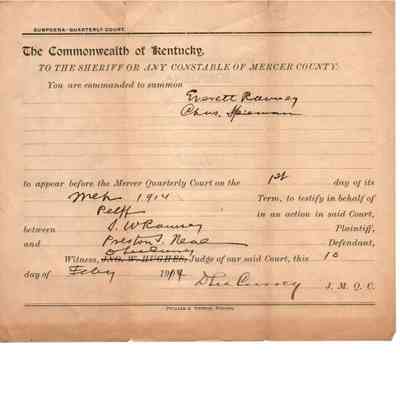 SUBPOENA-QUARTERLY COURT.
The Commonwealth of Kentucky,
TO THE SHERIFF OR ANY CONSTABLE OF MERCER COUNTY:
You are commanded to summon
Everett
Chas.
to appear before the Mercer Quarterly Court on the 1st day of its
Mch 1914 Term, to testify in behalf of
Pelff in an action in said Court,
between J. W Plaintiff,
and Preston Neal Defendant,
Witness, JNO. W. HUGHES, Judge of our said Court, this 10
day of Feby 1914 J. M. Q. C.